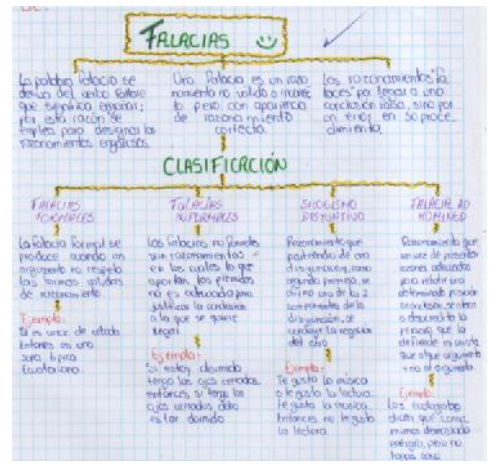 FALACIAS
La palabra falacia se
deriva del verbo fallare
que significa engañar;
por esta razón se
emplea para designar los
razonamientos engañosos
Una falacia es un razo
namiento no valido o incorrec
to pero con apariencia
de razonamiento
correcto.
Los razonamientos "fa
laces" por llegar a una
conclusión falsa, sino por
un error en su proce
dimiento.
CLASIFICACIÓN
FALACIAS
FORMALES
La falacia formal se
produce cuando un
argumento no respeta
las formas validas
de razonamiento
Ejemplo:
Si es once de estado
Entonces es una
sopa tipica
Ecuatoriana.
FALACIAS
INFORMALES
Las falacias no formales
son razonamientos
en los cuales lo que
aportan las premisas
no es adecuado para
justificar la conclusión
a la que se quiere
llegar
Ejemplo:
Si estoy dormido
tengo los ojos cerrados
entonces si tengo los
ojos cerrados debo
estar dormido
SILOGISMO
DISYUNTIVO
Razonamiento que
partiendo de una
disyunción, como
segunda premisa, se
afirma una de las 2
componentes de la
disyunción, se
concluye la negación
del otro
Ejemplo:
Te gusta la música
o te gusta la lectura.
Te gusta la musica.
Entonces no te gusta
la lectura.
FALACIA AD
HOMINED
Razonamiento que
en vez de presentar
razones adecuadas
para rebatir una
determinada posición
o conclusión, se ataca
o desacredita la
persona que la
defiende
que el argumento
y no el argumento
Ejemplo:
Los ecologistas
dicen que
mimos demasiada
energía, pero no